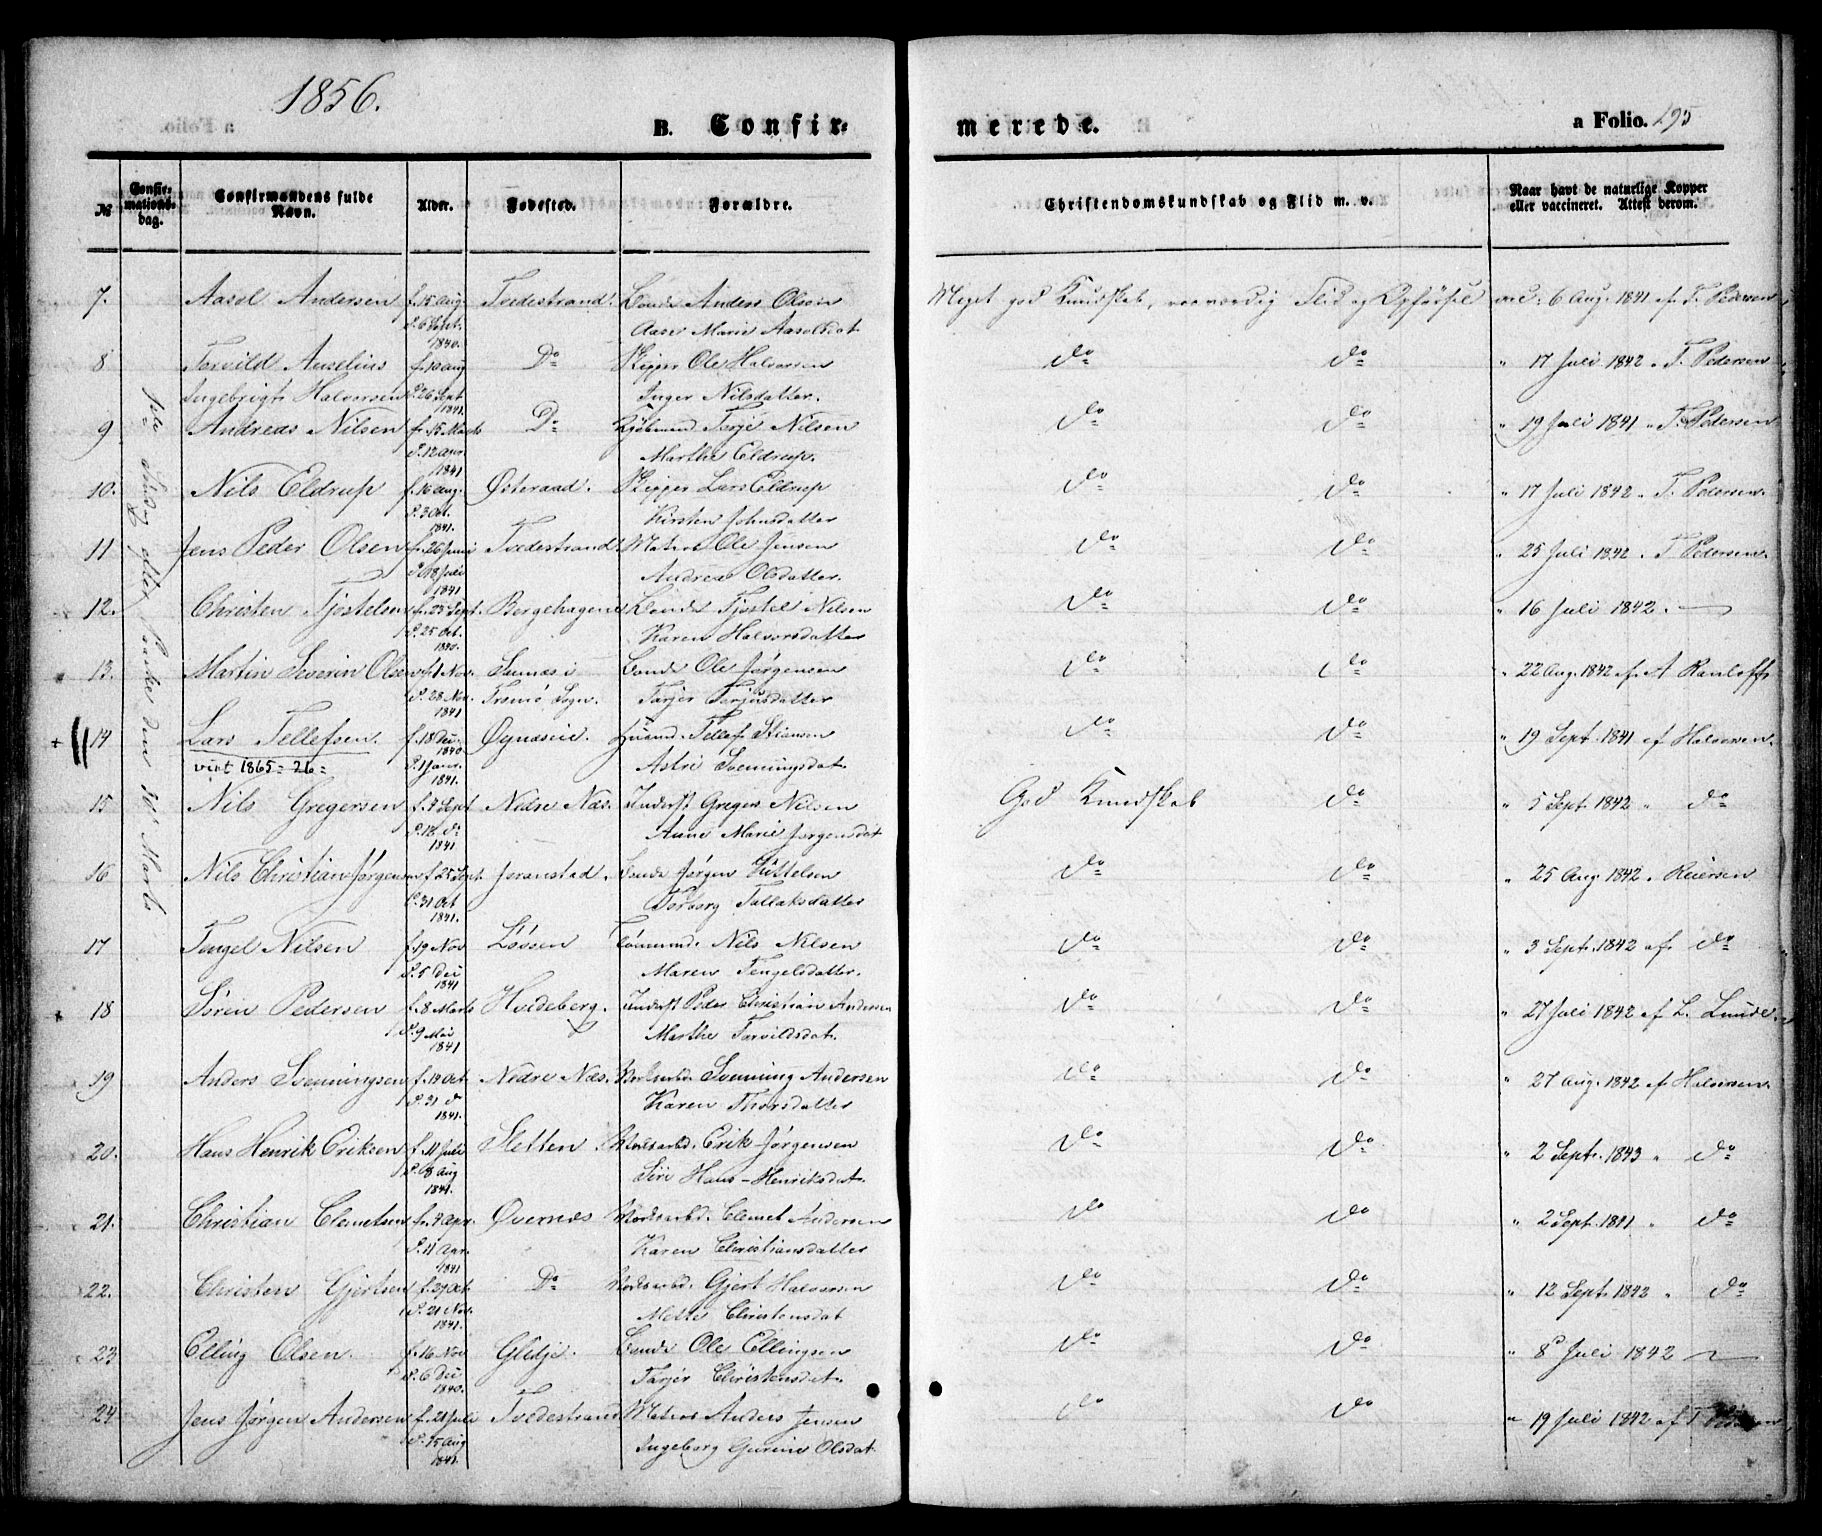 1856.
B. Confir-
merede.
a Folio. 295
№
Confirmationsdag.
Confirmandens fulde Navn.
Alder.
Fødested.
Forældre.
Christendomskundskab og Flid m. v.
Naar havt de naturlige Kopper eller vaccineret. Attest derom.
1ste Søndag efter Paaske den 30te Marts
7. Aasol Andersen f. 15 Aug. Tvedestrand. Bonde Anders Olsen Meget god Kundskab, Flid og Opførsel vac. 6 Aug. 1841 af T. Pedersen
d. 6 Sept. 1840. Aase Marie Aasolsdat
8 Torvild Anselius f. 10 aug Do Skipper Ole Halvorsen do do " 17 Juli 1842 " T. Pedersen
Ingebrigt Halvorsen d. 26 Sept 1841. Inger Nilsdatter.
9 Andreas Nilsen f. 15 Marts Do Kjøbmand Terje Nilsen do do " 19 Juli 1841 " T. Pedersen
d. 12 apr. 1841 Marthe Eldrup.
10. Nils Eldrup f. 16 aug. Østeraad. Skipper Lars Eldrup do do " 17 Juli 1842 " T. Pedersen.
d. 3 Oct. 1841. Kirsten Johnsdatter
11 Jens Peder Olsen f. 26 Juni Tvedestrand Matros Ole Jensen do do " 25 Juli 1842 " T. Pedersen.
d. 18 Juli 1841 Andrea Olsdatter.
12. Christen Tjostelsen f. 23 Sept. Bergehagene Bonde Tjostel Nilsen do do " 16 Juli 1842. —
d. 25 Oct. 1840. Karen Halvorsdatter
13. Martin Severin Olsen f. 1 Nov. Sannæs i Bonde Ole Jørgensen do do " 22 Aug. 1842 af A Ranloff
d. 28 Nov. 1841 Tromø Sogn. Tarjer Terjusdatter
+ 14 Lars Tellefsen. f. 18 Dec. 1840 Øynæseie. Huusmd. Tellef Stiansen do do " 19 Sept. 1841 af Halvorsen.
viet 1865 = 26 = d. 1 Janr. 1841. Astri Svenningsdat.
15 Nils Gregersen f. 3 Sept Nedre Næs. Inderst Gregers Nilsen God Kundskab do " 5 Sept. 1842 " do
d. 12 do 1841 Anne Marie Jørgensdat
16 Nils Christian Jørgensen f. 25 Sept. Joranstad. Bonde Jørgen Kittelsen do do " 25 Aug. 1842 " Reiersen
d. 31 Oct 1841. Torborg Tallaksdatter
17 Tengel Nilsen f. 19 Nov Løssen Tømmermd. Nils Nilsen do do " 3 Sept. 1842 af do
d. 5 Dec 1841 Maren Tengelsdatter.
18 Søren Pedersen f. 8 Marts Hvideberg. Inderst Peder Christian Andersen do do " 27 Juli 1842 af L. Lunde
d. 9 Mai 1841 Marthe Torvildsdat.
19 Anders Svenningsen f. 14 Oct Nedre Næs. Svenning Andersen do do " 27 Aug. 1842 af Halvorsen.
d. 31 d 1841. Karen Thorsdatter
20. Hans Henrik Eriksen f. 11 Juli Sletten. Værksarbd. Erik Jørgensen do do " 2 Sept. 1843 " do
d. 8 aug 1841. Siri Hans-Henriksdat.
21. Christian Clemetsen f. 4 apr. Øvernæs Værksarbd. Clemet Andersen do do " 2 Sept. 1841 " do
d. 11 apr. 1841 Karen Christiansdatter
22. Christen Gjertsen f. 27 Oct Do Værksarbd. Gjert Halvorsen do do " 12 Sept. 1842 " do
d. 21 Nov. 1841. Mette Christensdat
23 Elling Olsen. f. 16 Nov Gledje. Bonde Ole Ellingsen do do " 8 Juli 1842 —
d. 6 Dec 1840. Tarjer Christensdat.
24 Jens Jørgen Andersen f. 21 Juli Tvedestrand Matros Anders Jensen do do " 19 Juli 1842 af T. Pedersen
d. 15 Aug 1841. Ingeborg Gurine Olsdat.